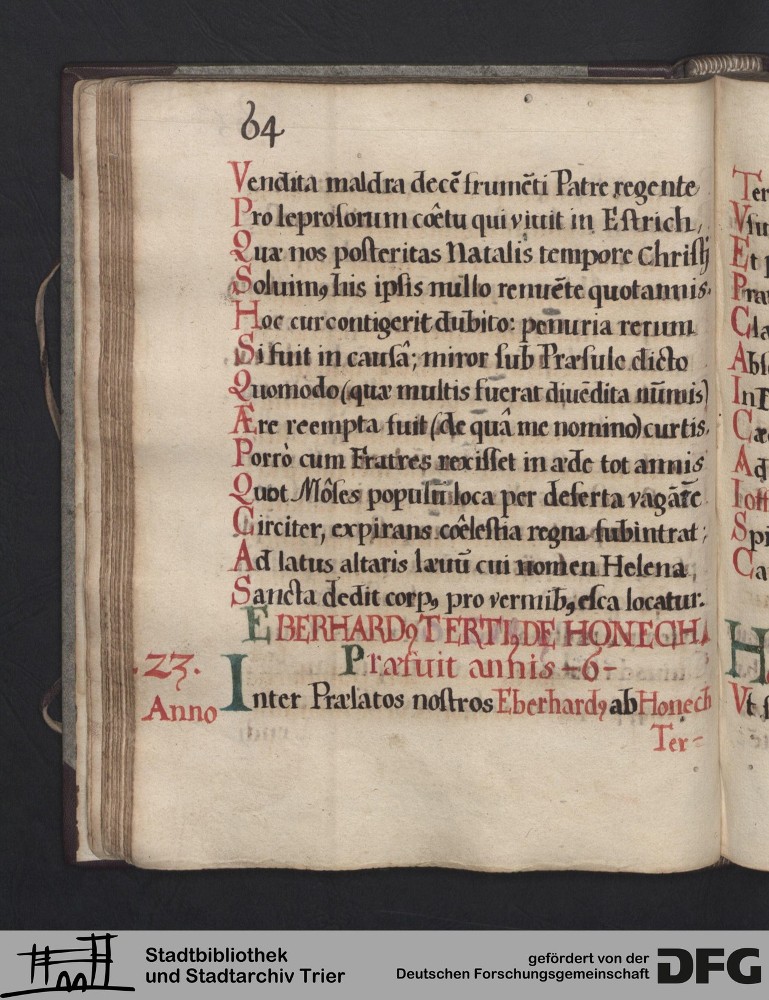 64
Vendita maldra decē frumēti Patre regente
Pro leprosorum coêtu qui viuit in Estrich,
Quæ nos posteritas Natalis tempore Christj
Soluimꝯ his ipsis nullo renuēte quotannis.
Hoc cur contigerit dubito: penuria rerum
Si fuit in causâ; miror sub Præsule dicto
Quomodo (quæ multis fuerat diuēdita nūmis)
Ære reempta fuit (de quâ me nomino) curtis.
Porrò cum Fratres rexisset in æde tot annis
Quot Môses populū loca per deserta vagāte
Circiter, expirans coêlestia regna subintrat;
Ad latus altaris læuū cui nomen Helena
Sancta dedit corpꝯ pro vermibꝯ esca locatur.
EBERHARDꝯ TERTIꝯ DE HONECH.
.23. Præfuit annis -6-
Anno Inter Prælatos nostros Eberhardꝯ ab Honech
Ter=
Ter
Vsu
Et p
Præ
Cla
Abs
In
Cæ
Ad
Iott
Spi
Ca
H
Vt s
Stadtbibliothek
und Stadtarchiv Trier
gefördert von der
Deutschen Forschungsgemeinschaft
DFG